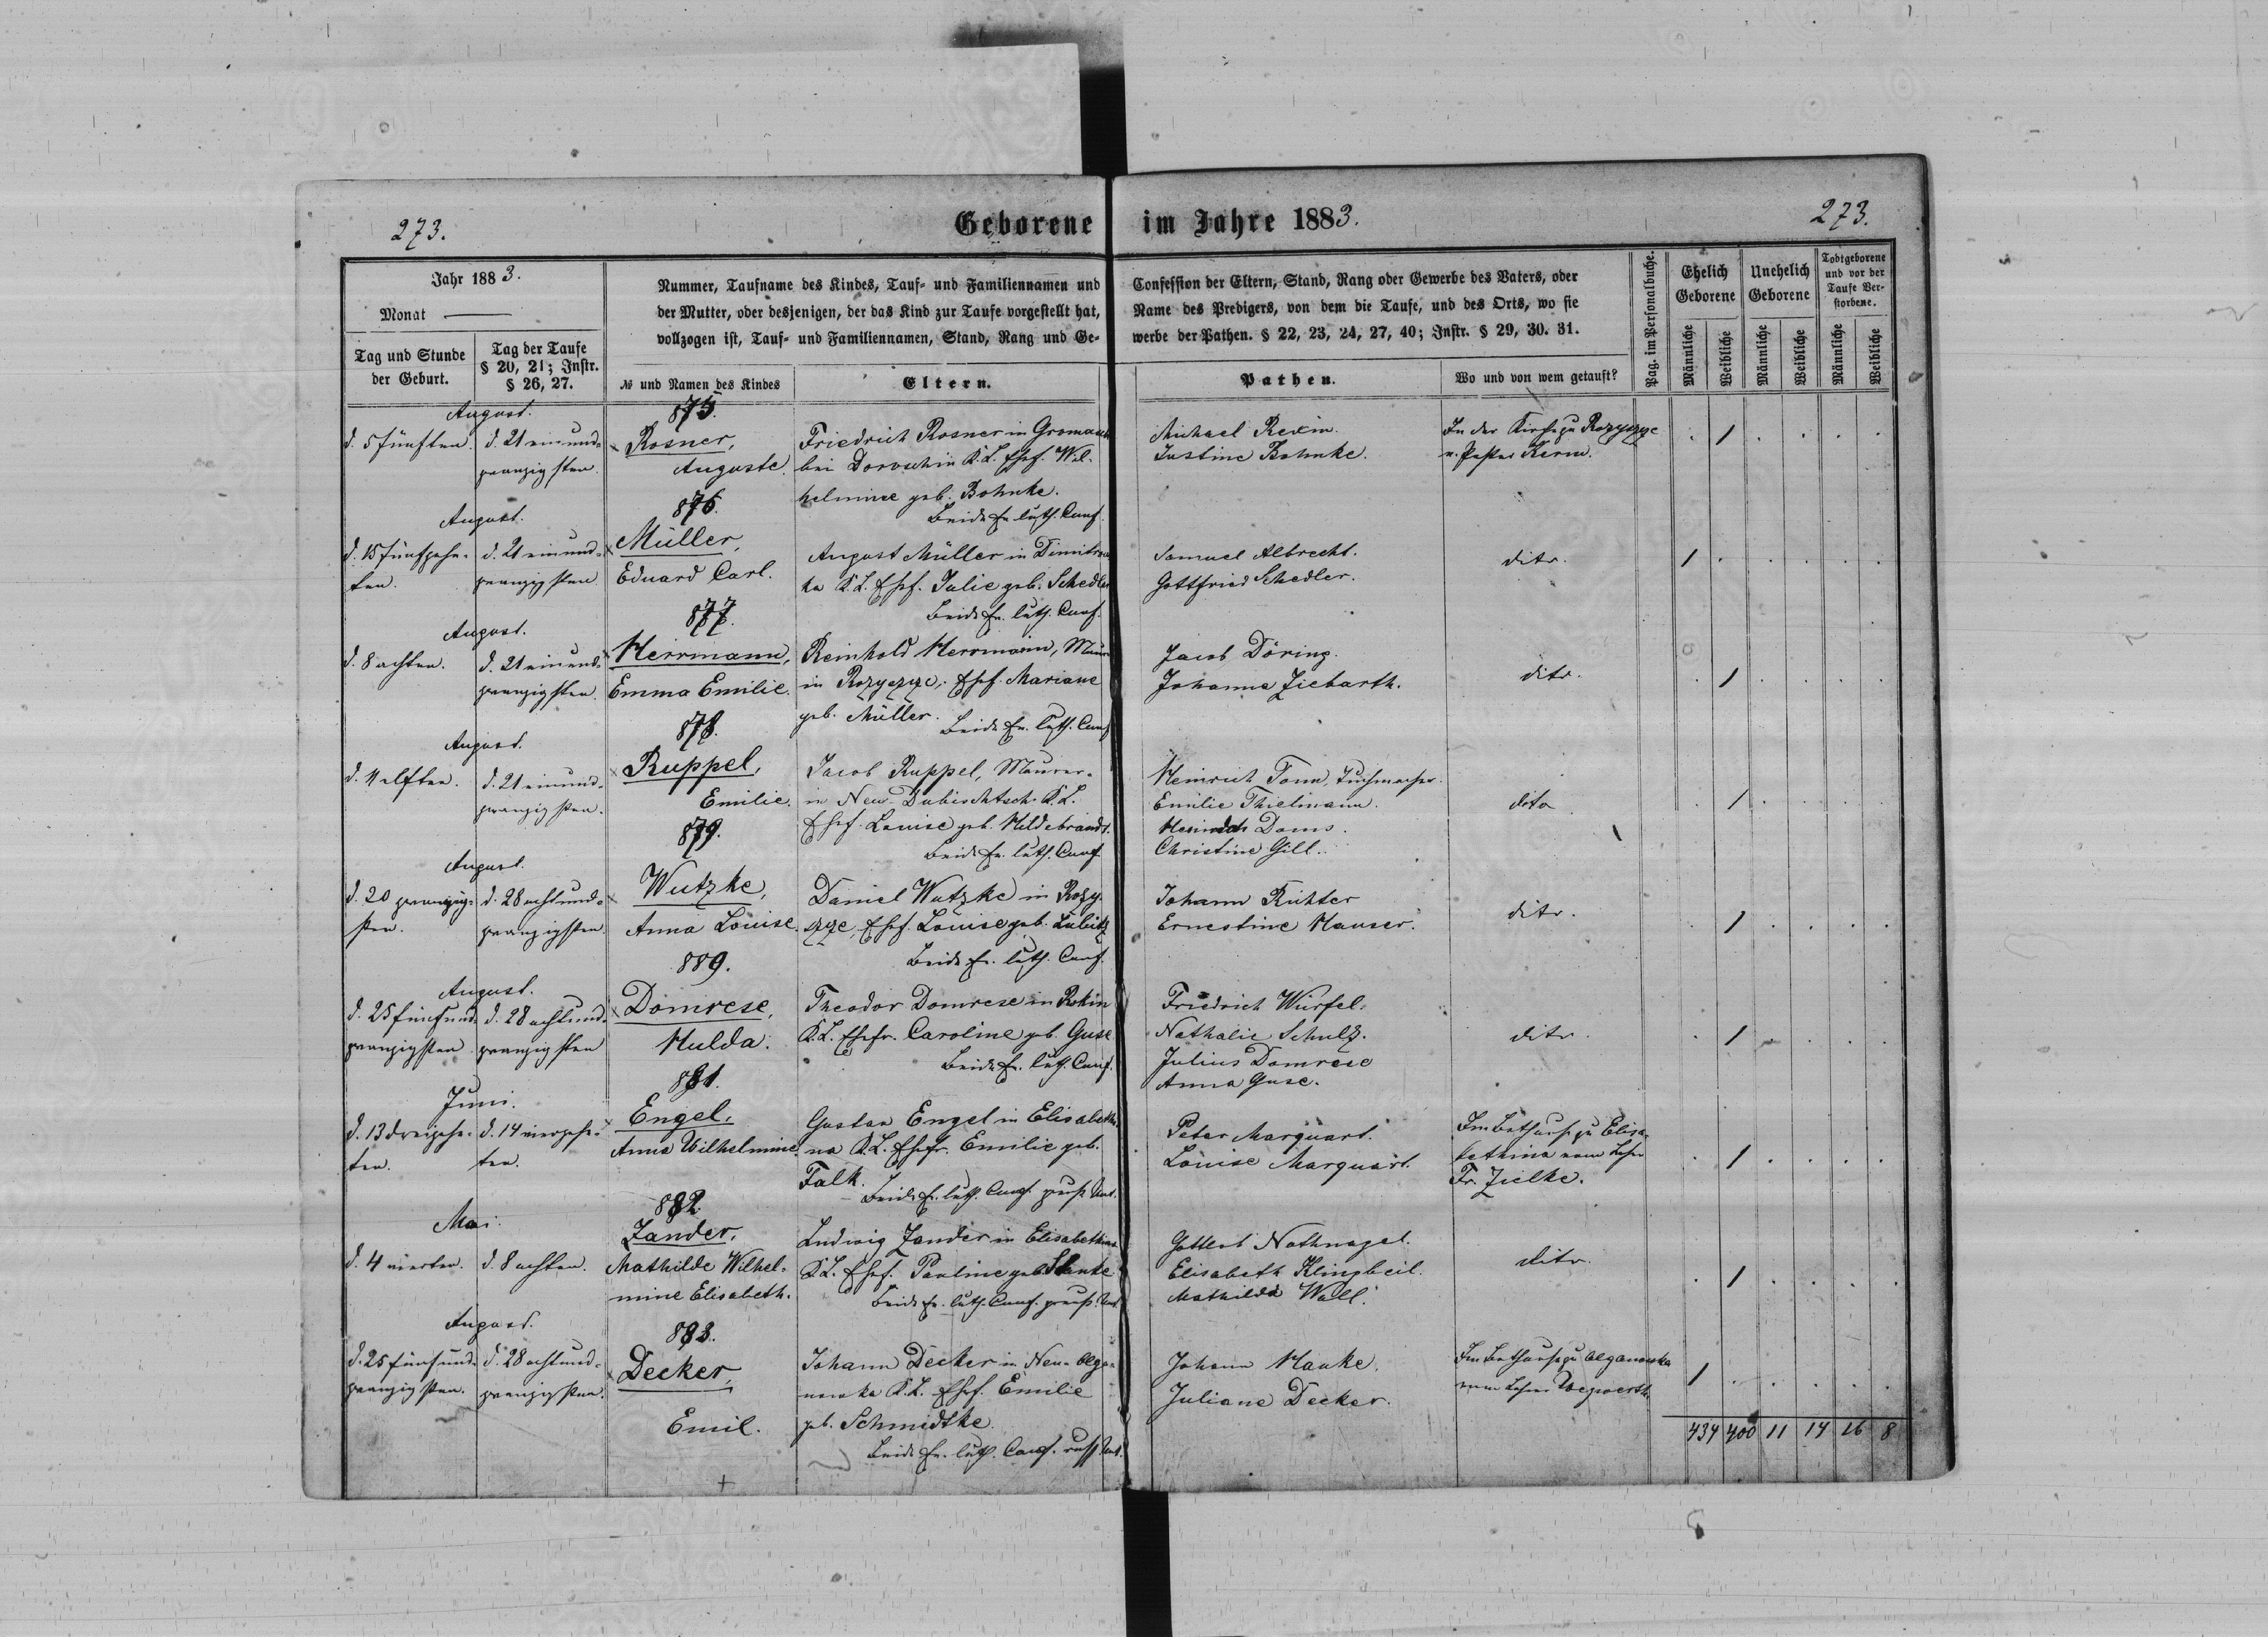 273.
Geborene im Jahre 1883.
273.
Jahr 1883.
Monat
Tag und Stunde der Geburt.
Tag der Taufe § 20, 21; Instr. § 26, 27.
Nummer, Taufname des Kindes, Tauf- und Familiennamen und
der Mutter, oder desjenigen, der das Kind zur Taufe vorgestellt hat,
vollzogen ist, Tauf- und Familiennamen, Stand, Rang und Ge-
№ und Namen des Kindes
Eltern.
Confession der Eltern, Stand, Rang oder Gewerbe des Vaters, oder
Name des Predigers, von dem die Taufe, und des Orts, wo sie
werbe der Pathen. § 22, 23, 24, 27, 40; Instr. § 29, 30. 31.
Pathen.
Wo und von wem getauft?
Pag. im Personalbuche.
Ehelich Geborene
Unehelich Geborene
Todtgeborene und vor der Taufe Verstorbene.
Männliche
Weibliche
Männliche
Weibliche
Männliche
Weibliche
August.
d. 5 fünften.
d. 21 einund-
zwanzigsten.
875.
Rosner,
Auguste.
Friedrich Rosner in Gromasch
bei Doroschin K.L. Ehef. Wil-
helmine geb. Bohnke.
Beide Ev. luth. Conf.
Michael Rexin.
Justine Bohnke.
In der Kirche zu Rozyszcze
v. Pastor Kerm.
1
August.
d. 15 fünfzehn-
ten.
d. 21 einund-
zwanzigsten
876.
Müller,
Eduard Carl.
August Müller in Dimitrow
ka K.L. Ehef. Julie geb. Schedler
Beide Ev. luth. Conf.
Samuel Albrecht.
Gottfried Schedler.
dito.
1
August.
d. 8 achten.
d. 21 einund-
zwanzigsten.
877.
Herrmann,
Emma Emilie.
Reinhold Herrmann, Maurer
in Rozyszcze, Ehef. Mariane
geb. Müller.
Beide Ev. luth. Conf
Jacob Döring.
Johanna Ziebarth.
dito.
1
August.
d. 11 elften.
d. 21 einund-
zwanzigsten.
878.
Ruppel,
Emilie.
Jacob Ruppel, Maurer
in Neu-Dubischtsch K.L.
Ehef. Louise geb. Hildebrandt.
Beide Ev. luth. Conf.
Heinrich Tonn, Tuchmacher.
Emilie Thielmann.
Heinrich Doms.
Christine Gill.
dito
1
August.
d. 20 zwanzig-
sten.
d. 28 achtund-
zwanzigsten
879.
Wutzke,
Anna Louise.
Daniel Wutzke in Rozy-
szcze, Ehef. Louise geb. Lübitz
Beide Ev. luth. Conf.
Johann Richter
Ernestine Hauser.
dito.
1
August.
d. 25 fünfund-
zwanzigsten.
d. 28 achtund-
zwanzigsten
889.
Domrese,
Hulda.
Theodor Domrese in Rokin
K.L. Ehefr. Caroline geb. Guse
Beide Ev. luth. Conf.
Friedrich Würfel.
Nathalie Schulz.
Julius Domrese
Anna Guse.
dito.
1
Juni.
d. 13 dreizehn-
ten.
d. 14 vierzehn-
ten.
881.
Engel,
Anna Wilhelmine.
Gustav Engel in Elisabethi-
na K.L. Ehefr. Emilie geb.
Falk.
Beide Ev. luth. Conf. preuß. Unt.
Peter Marquart.
Louise Marquart.
Im Bethause zu Elisa-
bethina vom Lehrer
Fr. Zielke.
1
Mai.
d. 4 vierten.
d. 8 achten.
882
Zander,
Mathilde Wilhel-
mine Elisabeth.
Ludwig Zander in Elisabethina
K.L. Ehef. Pauline geb.
Beide Ev. luth. Conf. preuß. Unt.
Gottlieb Nothnagel.
Elisabeth Klingbeil.
Mathilda Wall.
dito.
1
August.
d. 25 fünfund-
zwanzigsten.
d. 28 achtund-
zwanzigsten.
883.
Decker,
Emil.
Johann Decker in Neu-Olga-
nowka K.L. Ehef. Emilie
geb. Schmidtke
Beide Ev. luth. Conf. russ. Unt.
Johann Hanke.
Juliane Decker.
Im Bethause zu Olganowka
vom Lehrer
1
434 400 11 14 16 8